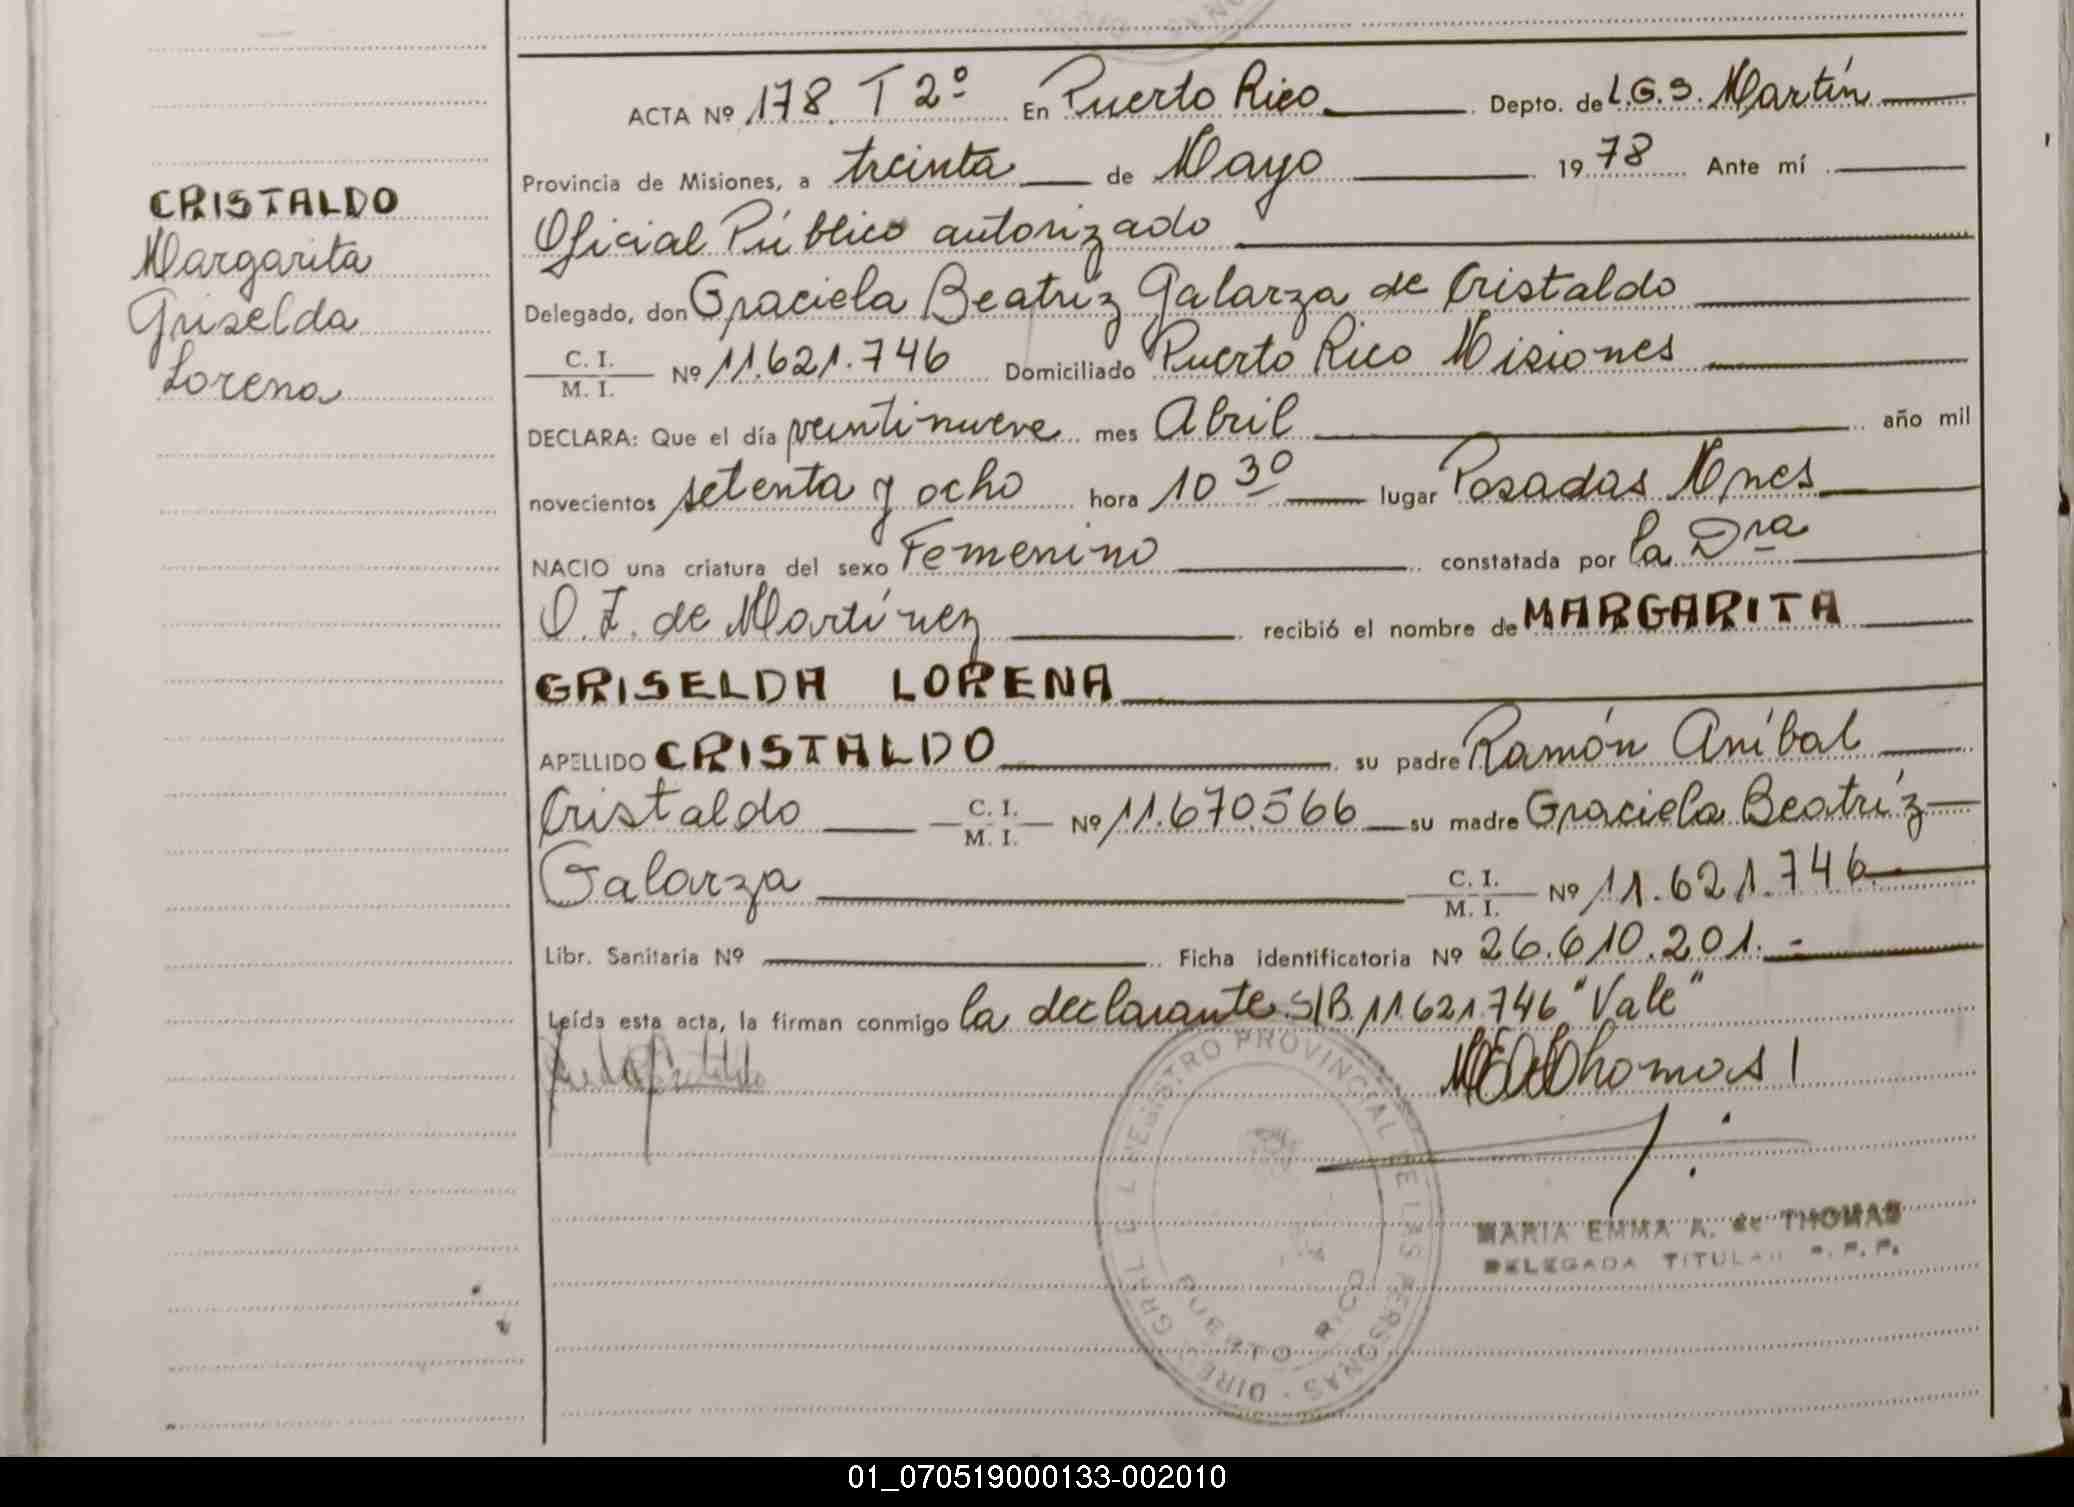 CRISTALDO
Margarita
Griselda
Lorena
ACTA Nº 178 T 2º En Puerto Rico Depto. de L.G.S. Martín
Provincia de Misiones, a treinta de Mayo 1978 Ante mí
Oficial Público autorizado
Delegado, don Graciela Beatríz Galarza de Cristaldo
C. I.
M. I. Nº 11.621.746 Domiciliado Puerto Rico Misiones
DECLARA: Que el día veintinueve mes Abril año mil
novecientos setenta y ocho hora 10 30 lugar Posadas Mnes
NACIO una criatura del sexo Femenino constatada por la Dra
O. Z. de Martínez recibió el nombre de MARGARITA
GRISELDA LORENA
APELLIDO CRISTALDO su padre Ramón Aníbal
Cristaldo C. I. M. I. Nº 11.670.566 su madre Graciela Beatríz
Galarza C. I. M. I. Nº 11.621.746
Libr. Sanitaria Nº Ficha identificatoria Nº 26.610.201.-
Leída esta acta, la firman conmigo la declarante S/B. 11.621.746 "Vale"
DIREC. GRAL. DEL REGISTRO PROVINCIAL DE LAS PERSONAS
PUERTO RICO
MARIA EMMA A. de THOMAS
DELEGADA TITULAR R. P. P.
01_070519000133-002010